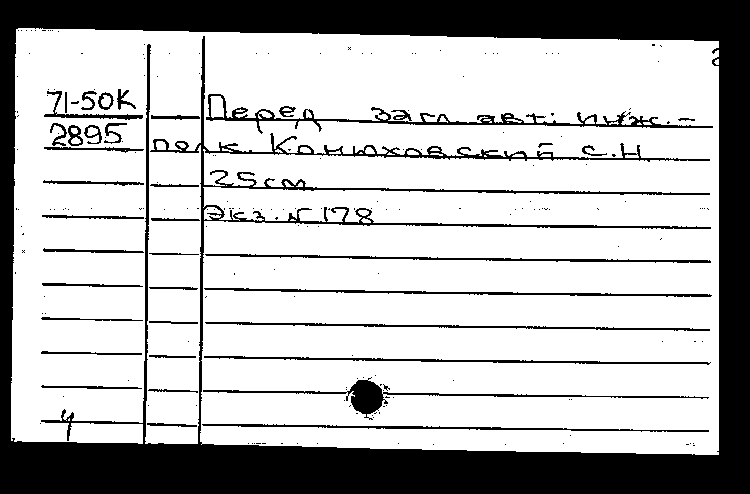 2
71-50К Перед загл. авт: инж.-
2895 полк. Конюховский С.Н.
25см
Экз. № 178
ч